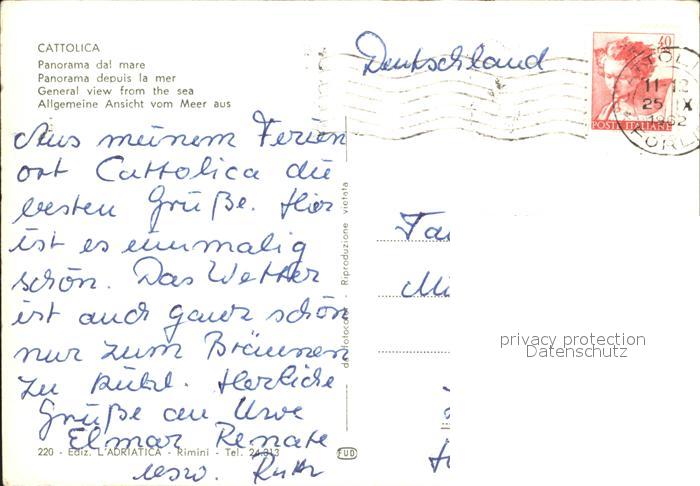 CATTOLICA
Panorama dal mare
Panorama depuis la mer
General view from the sea
Allgemeine Ansicht vom Meer aus
Deutschland
40
11
25 IX
1962
FORLI
POSTE ITALIANE
Aus meinem Ferien
ort Cattolica die
besten Grüße. Hier
ist es einmalig
schön. Das Wetter
ist auch ganz schön
nur zum Bräunen
zu kühl. Herzliche
Grüße an Uwe
Elmar Renate
usw. Ruth
220 - Ediz. L'ADRIATICA - Rimini - Tel. 24.313
Riproduzione vietata
FUD
privacy protection
Datenschutz